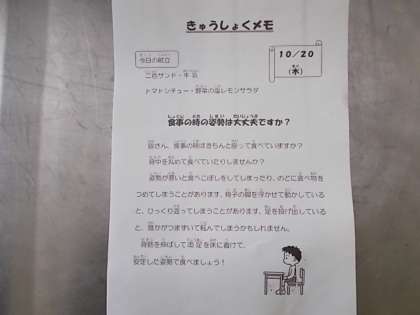 きゅうしょくメモ
今日の献立
10/20
(水)
二色サンド・牛乳
トマトシチュー・野菜の塩レモンサラダ
食事の時の姿勢は大丈夫ですか？
皆さん、食事の時はきちんと座って食べていますか？
背中を丸めて食べていたりしませんか？
姿勢が悪いと食べこぼしをしてしまったり、のどに食べ物を
つめてしまうことがあります。椅子の脚を浮かせて動かしている
と、ひっくり返ってしまうことがあります。足を投げ出している
と、誰かがつまずいて転んでしまうかもしれません。
背筋を伸ばして両足を床に着けて、
安定した姿勢で食べましょう！